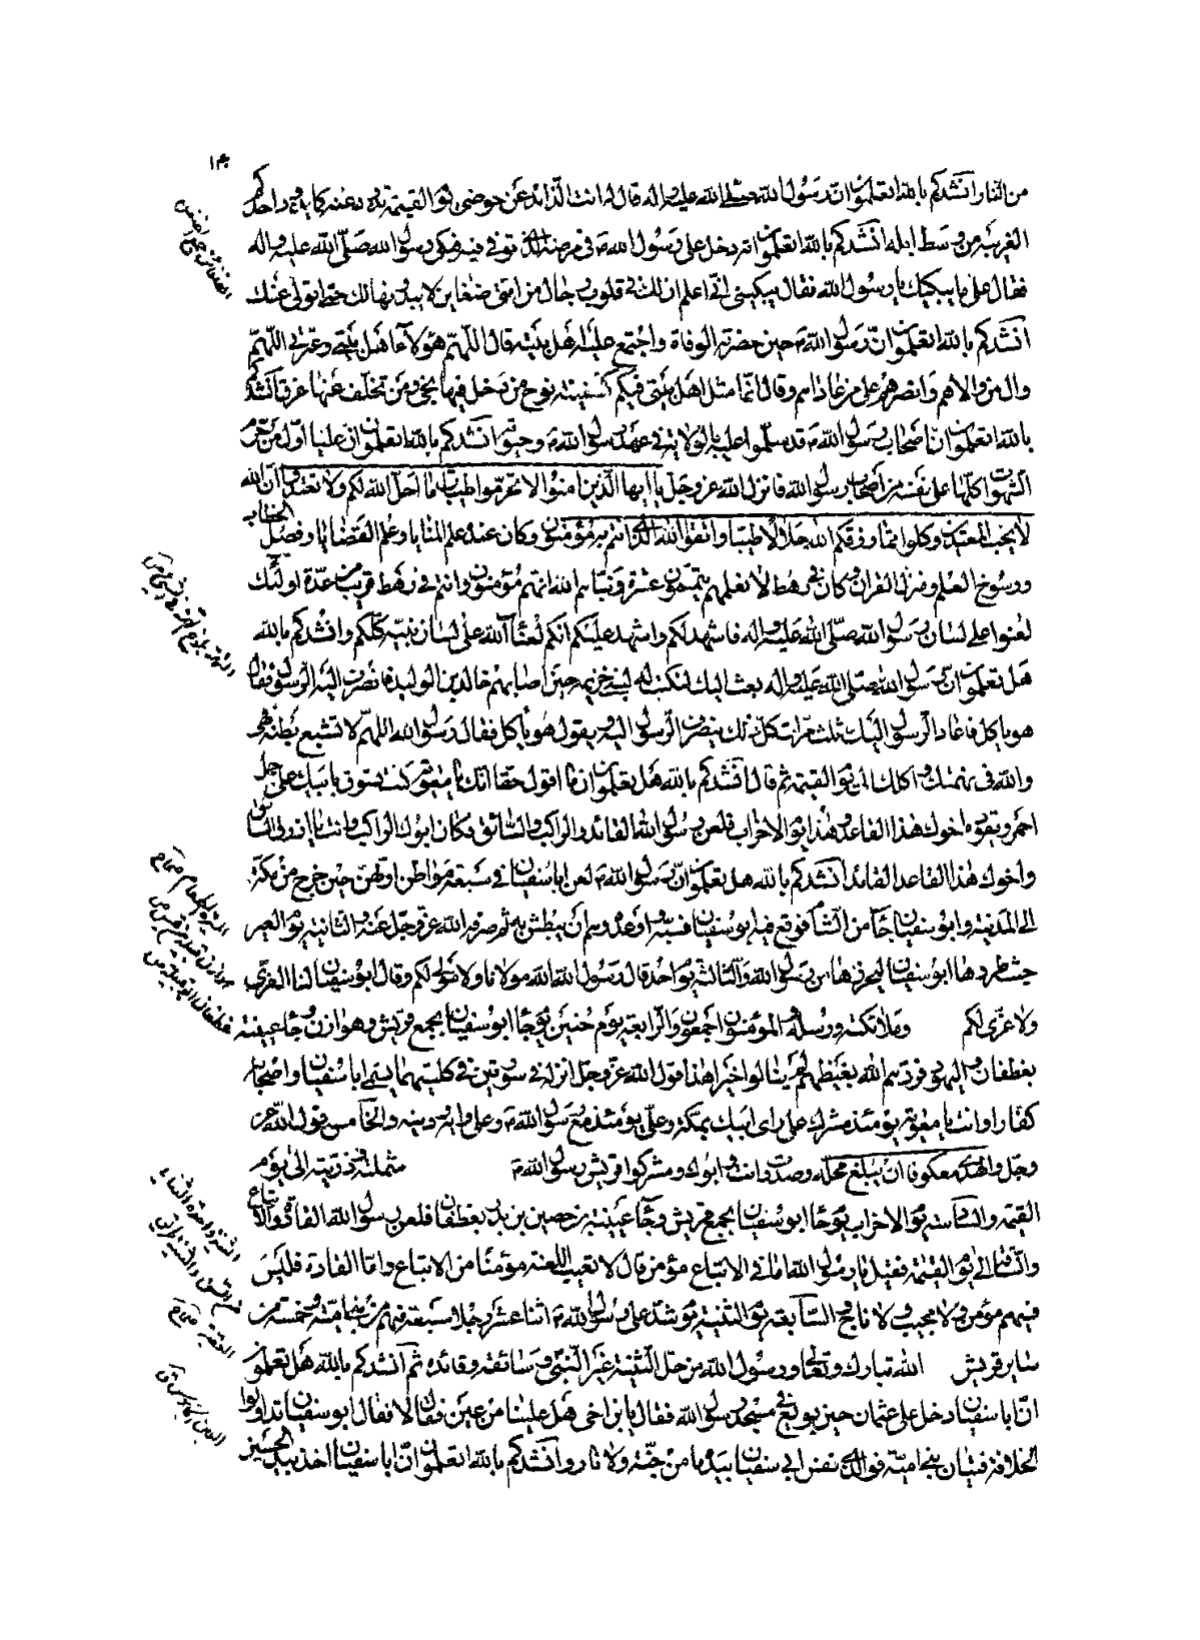 من النار انشدكم بالله اتعلمون ان رسول الله صلى الله عليه واله قال له انت الذائد عن حوضى يوم القيمة تذود عنه كما يذود احدكم
الغريبة من وسط ابله انشدكم بالله اتعلمون انه دخل على رسول الله ص فى مرضه الذى توفى فيه فبكى رسول الله صلّى الله عليه واله
فقال على ما يبكيك يا رسول الله فقال يبكينى انّى اعلم ان لك فى قلوب رجال من امتى ضغاين لا يبدونها لك حتى اتولى عنك
انشدكم بالله اتعلمون انّ رسول الله ص حين حضرته الوفاة واجتمع عليه اهل بيته قال اللّهمّ هؤلاء اهل بيتى وعترتى اللّهمّ
وال من والاهم وانصرهم على من عاداهم وقال انّما مثل اهل بيتى فيكم كسفينة نوح من دخل فيها نجى ومن تخلّف عنها غرق انشدكم
بالله اتعلمون انّ اصحاب رسول الله ص قد سلّموا عليه بالولاية فى عهد رسول الله ص وحيوته انشدكم بالله اتعلمون ان عليا اوّل من حرّم
الشهوات كلّها على نفسه من اصحاب رسول الله فانزل الله عز وجل يا ايها الذين امنوا لا تحرّموا طيبات ما احلّ الله لكم ولا تعتدوا انّ الله
لا يحب المعتدين وكلوا ممّا رزقكم الله حلالا طيّبا واتقوا الله الذى انتم به مؤمنون وكان عنده علم المنايا وعلم القضايا وفصل الخطاب
ورسوخ العلم ومنزل القران وكان فى رهط لا نعلمهم يتمّون عشرة نبّاهم الله انهم مؤمنون وانتم فى رهط قريب من عدّة اولئك
لعنوا على لسان رسول الله صلّى الله عليه واله فاشهد لكم واشهد عليكم انكم لعناء الله على لسان نبيّه كلّكم وانشدكم بالله
هل تعلمون انّ رسول الله صلى الله عليه واله بعث اليك لتكتب له لبنى خزيمة حين اصابهم خالد بن الوليد فانصرف اليه الرسول فقال
هو ياكل فاعاد الرسول اليك ثلث مرّات كلّ ذلك ينصرف الرسول اليه ويقول هو ياكل فقال رسول الله اللهمّ لا تشبع بطنه فهى
والله فى نهمتك واكلك الى يوم القيمة ثم قال انشدكم بالله هل تعلمون ان ما اقول حقا انك يا معوية كنت تسوق بابيك على جمل
احمر ويقوده اخوك هذا القاعد وهذا يوم الاحزاب فلعن رسول الله القائد والراكب والسّائق فكان ابوك الراكب وانت يا ازرق السّائق
واخوك هذا القاعد القائد انشدكم بالله هل تعلمون انّ رسول الله ص لعن ابا سفيان فى سبعة مواطن اوّلهنّ حين خرج من مكّة
الى المدينة وابو سفيان جاء من الشام فوقع فيه ابو سفيان فسبّه واوعده وهمّ ان يبطش به ثم صرفه الله عزوجلّ عنه والثانية يوم العير
حيث طردها ابو سفيان ليحرزها من رسول الله والثالثة يوم احد قال رسول الله الله مولانا ولا مولى لكم وقال ابو سفيان لنا العزّى
ولا عزّى لكم وملائكته ورسله والمؤمنون اجمعون والرابعة يوم حنين يوم جاء ابو سفيان بجمع قريش وهوازن وجاء عيينة
بغطفان واليهود فردّهم الله بغيظهم لم ينالوا خيرا هذا قول الله عز وجل انزله فى سورتين فى كلتيهما يسمى ابا سفيان واصحابه
كفارا وانت يا معوية يومئذ مشرك على راى ابيك بمكة وعلىّ يومئذ مع رسول الله ص وعلى رايه ودينه والخامس قول الله عز
وجل والهدى معكوفا ان يبلغ محله وصددت انت وابوك ومشركوا قريش رسول الله ص شملته وذريته الى يوم
القيمة والسادسة يوم الاحزاب يوم جاء ابو سفيان بجمع قريش وجاء عيينة بن حصين بن بدر بغطفان فلعن رسول الله القادة والاتباع
والسّاقة الى يوم القيمة فقيل يا رسول الله اما فى الاتباع مؤمن قال لا تصيب اللعنة مؤمنا من الاتباع وامّا القادة فليس
فيهم مؤمن ولا مجيب ولا ناج والسّابعة يوم الثنية يوم شدّ على رسول الله ص اثنا عشر رجلا سبعة منهم من بنى اميّة وخمسة من
ساير قريش الله تبارك وتعالى ورسول الله من حلّ الثنية غير النّبىّ ص وسائقه وقائده ثم انشدكم بالله هل تعلمون
انّ ابا سفيان دخل على عثمان حين بويع فى مسجد رسول الله فقال يا بن اخى هل علينا من عين فقال لا فقال ابو سفيان تداولوا
الخلافة فتيان بنى اميّة فو الذى نفس ابى سفيان بيده ما من جنّة ولا نار وانشدكم بالله اتعلمون انّ ابا سفيان اخذ بيد الحسين